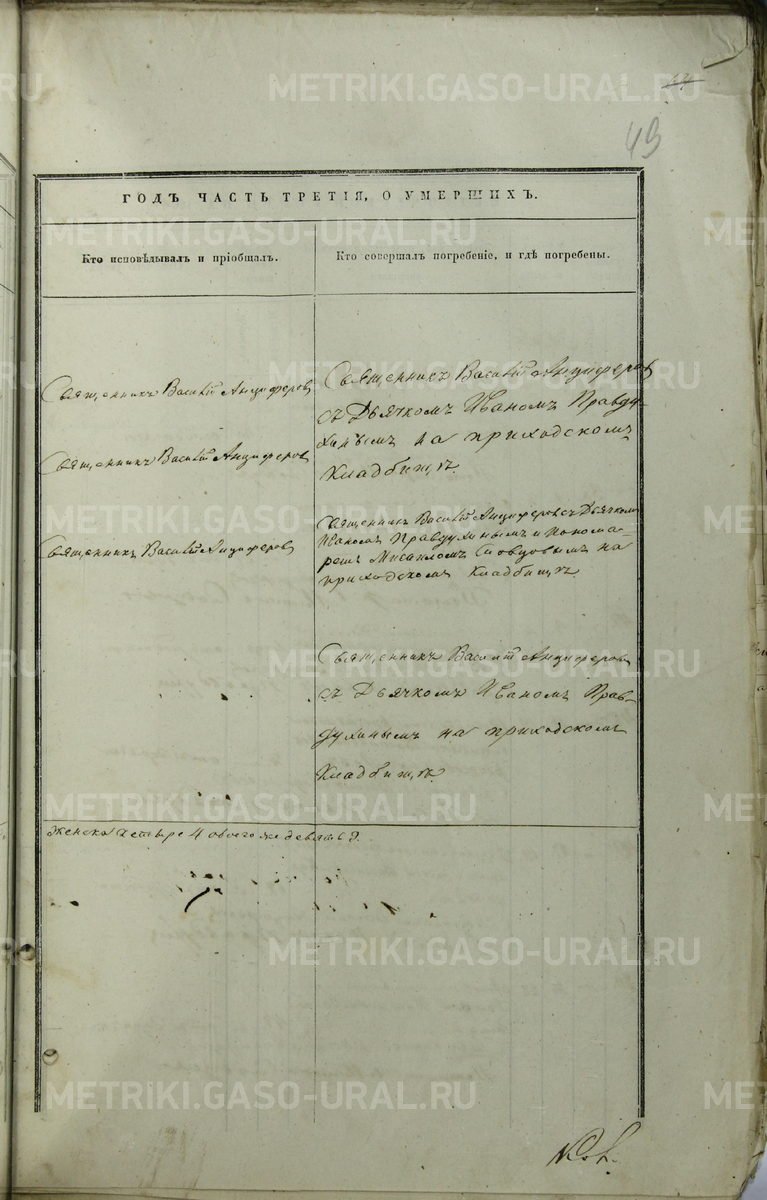 49
ГОДЪ ЧАСТЬ ТРЕТІЯ, О УМЕРШИХЪ.
Кто исповѣдывалъ и пріобщалъ.
Кто совершалъ погребеніе, и гдѣ погребены.
Священникъ Василій Анциферовъ
Священникъ Василій Анциферовъ
Священникъ Василій Анциферовъ
Священникъ Василій Анциферовъ
съ Дьячкомъ Иваномъ Правду-
хинымъ на приходскомъ
Кладбищѣ.
Священникъ Василій Анциферовъ съ Дьячкомъ
Иваномъ Правдухинымъ и Понома-
ремъ Мисаиломъ Словцовымъ на
приходскомъ Кладбищѣ
Священникъ Василій Анциферовъ
съ Дьячкомъ Иваномъ Прав-
духинымъ на приходскомъ
Кладбищѣ.
женска четыре 4 обоего же девять 9.
METRIKI.GASO-URAL.RU